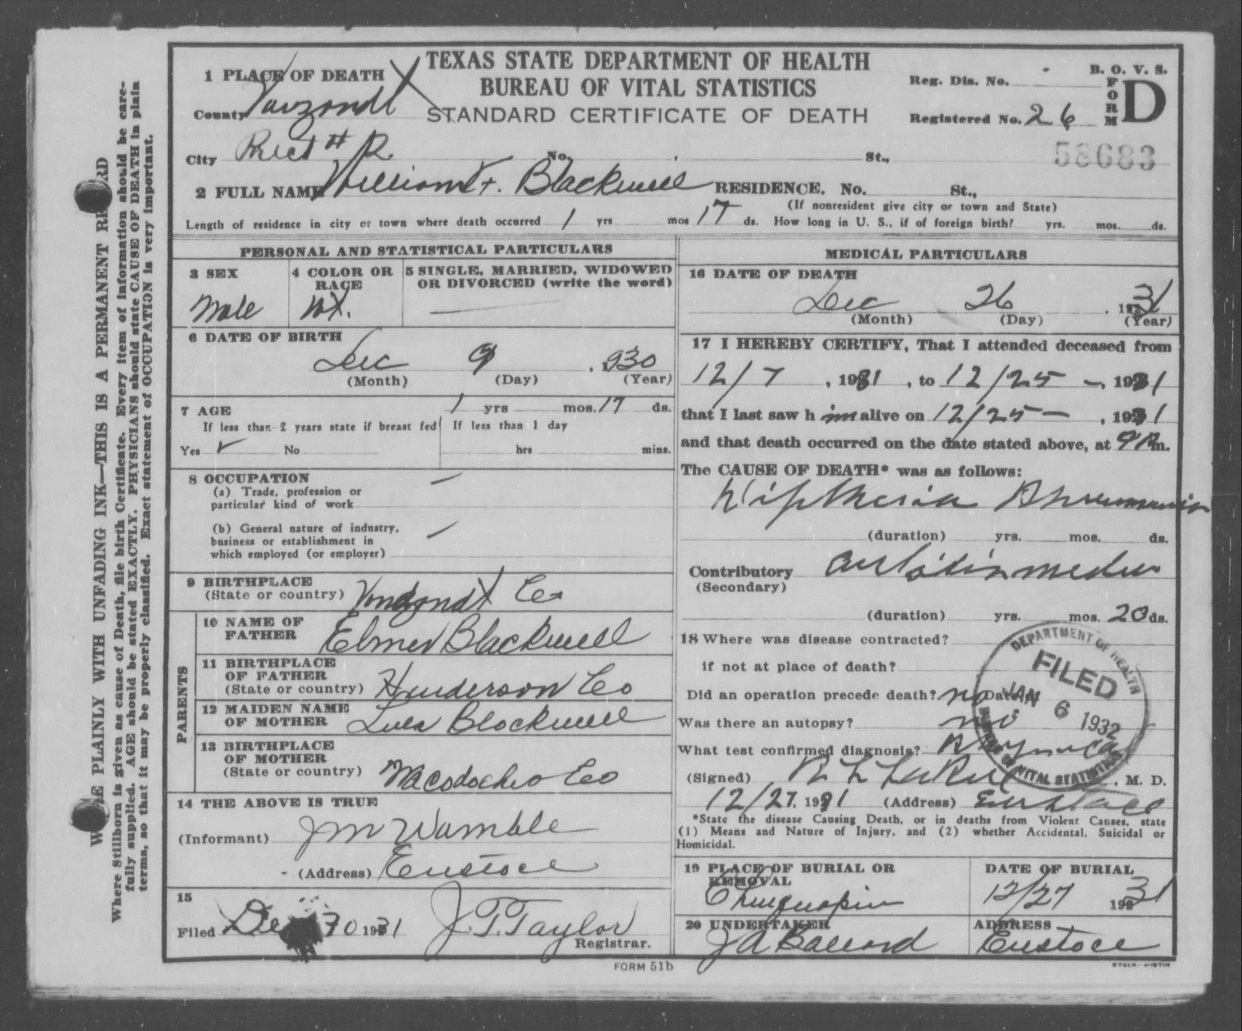 TEXAS STATE DEPARTMENT OF HEALTH
BUREAU OF VITAL STATISTICS
STANDARD CERTIFICATE OF DEATH
B. O. V. S.
FORM D
Reg. Dis. No.
Registered No. 26
58683
1 PLACE OF DEATH
County Vanzandt
City Prect # 2 No. St.,
2 FULL NAME William F. Blackwell RESIDENCE. No. St.,
(If nonresident give city or town and State)
Length of residence in city or town where death occurred 1 yrs mos 17 ds. How long in U. S., if of foreign birth? yrs. mos. ds.
PERSONAL AND STATISTICAL PARTICULARS
3 SEX
Male
4 COLOR OR RACE
5 SINGLE, MARRIED, WIDOWED
OR DIVORCED (write the word)
6 DATE OF BIRTH
Dec 9 , 930
(Month) (Day) (Year)
7 AGE 1 yrs mos. 17 ds.
If less than 2 years state if breast fed If less than 1 day
Yes ✓ No hrs mins.
8 OCCUPATION —
(a) Trade, profession or
particular kind of work
(b) General nature of industry,
business or establishment in
which employed (or employer) —
9 BIRTHPLACE
(State or country) Vanzandt Co
PARENTS
10 NAME OF
FATHER Elmer Blackwell
11 BIRTHPLACE
OF FATHER
(State or country) Henderson Co
12 MAIDEN NAME
OF MOTHER Lula Blackwell
13 BIRTHPLACE
OF MOTHER
(State or country) Nacodoches Co
14 THE ABOVE IS TRUE
(Informant) J M Wamble
(Address) Eustace
15
Filed Dec 30 1931 J. T. Taylor
Registrar.
MEDICAL PARTICULARS
16 DATE OF DEATH
Dec 26 , 1931
(Month) (Day) (Year)
17 I HEREBY CERTIFY, That I attended deceased from
12/7 , 1931 , to 12/25 – , 1931
that I last saw h im alive on 12/25 – , 1931
and that death occurred on the date stated above, at 9 m.
The CAUSE OF DEATH* was as follows:
Diptheria Pneumonia
(duration) yrs. mos. ds.
Contributory
(Secondary)
(duration) yrs. mos. 20 ds.
18 Where was disease contracted?
if not at place of death?
Did an operation precede death? no Date of
Was there an autopsy? no
What test confirmed diagnosis?
(Signed) , M. D.
12/27, 1931 (Address) Eustace
DEPARTMENT OF HEALTH
FILED
JAN 6 1932
BUREAU OF VITAL STATISTICS
*State the disease Causing Death, or in deaths from Violent Causes, state
(1) Means and Nature of Injury, and (2) whether Accidental, Suicidal or
Homicidal.
19 PLACE OF BURIAL OR
REMOVAL
Chinquapin
DATE OF BURIAL
12/27 1931
20 UNDERTAKER
J A Ballard
ADDRESS
Eustace
FORM 51b
STECK-AUSTIN
WRITE PLAINLY WITH UNFADING INK—THIS IS A PERMANENT RECORD
Where Stillborn is given as cause of Death, file birth Certificate. Every item of information should be care-
fully supplied. AGE should be stated EXACTLY. PHYSICIANS should state CAUSE OF DEATH in plain
terms, so that it may be properly classified. Exact statement of OCCUPATION is very important.